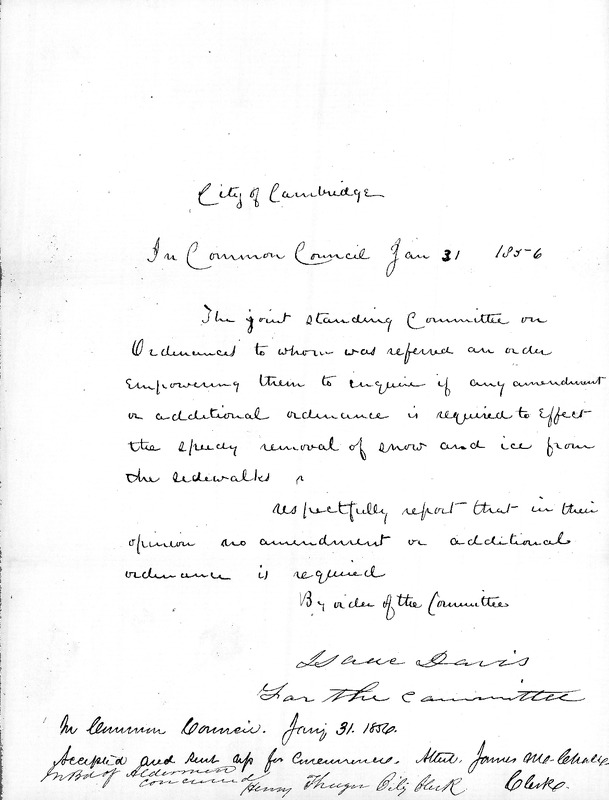 City of Cambridge
In Common Council Jan 31 1856
The joint standing Committee on
Ordinances to whom was referred an order
Empowering them to inquire if any amendment
or additional ordinance is required to Effect
the speedy removal of snow and ice from
the sidewalks
respectfully report that in their
opinion no amendment or additional
ordinance is required
By order of the Committee
Isaac Davis
For the Committee
In Common Council. Jany 31. 1856.
Accepted and sent up for concurrence. Attest. James
Clerk.
In Bd of Aldermen
concurred Henry Thayer City Clerk